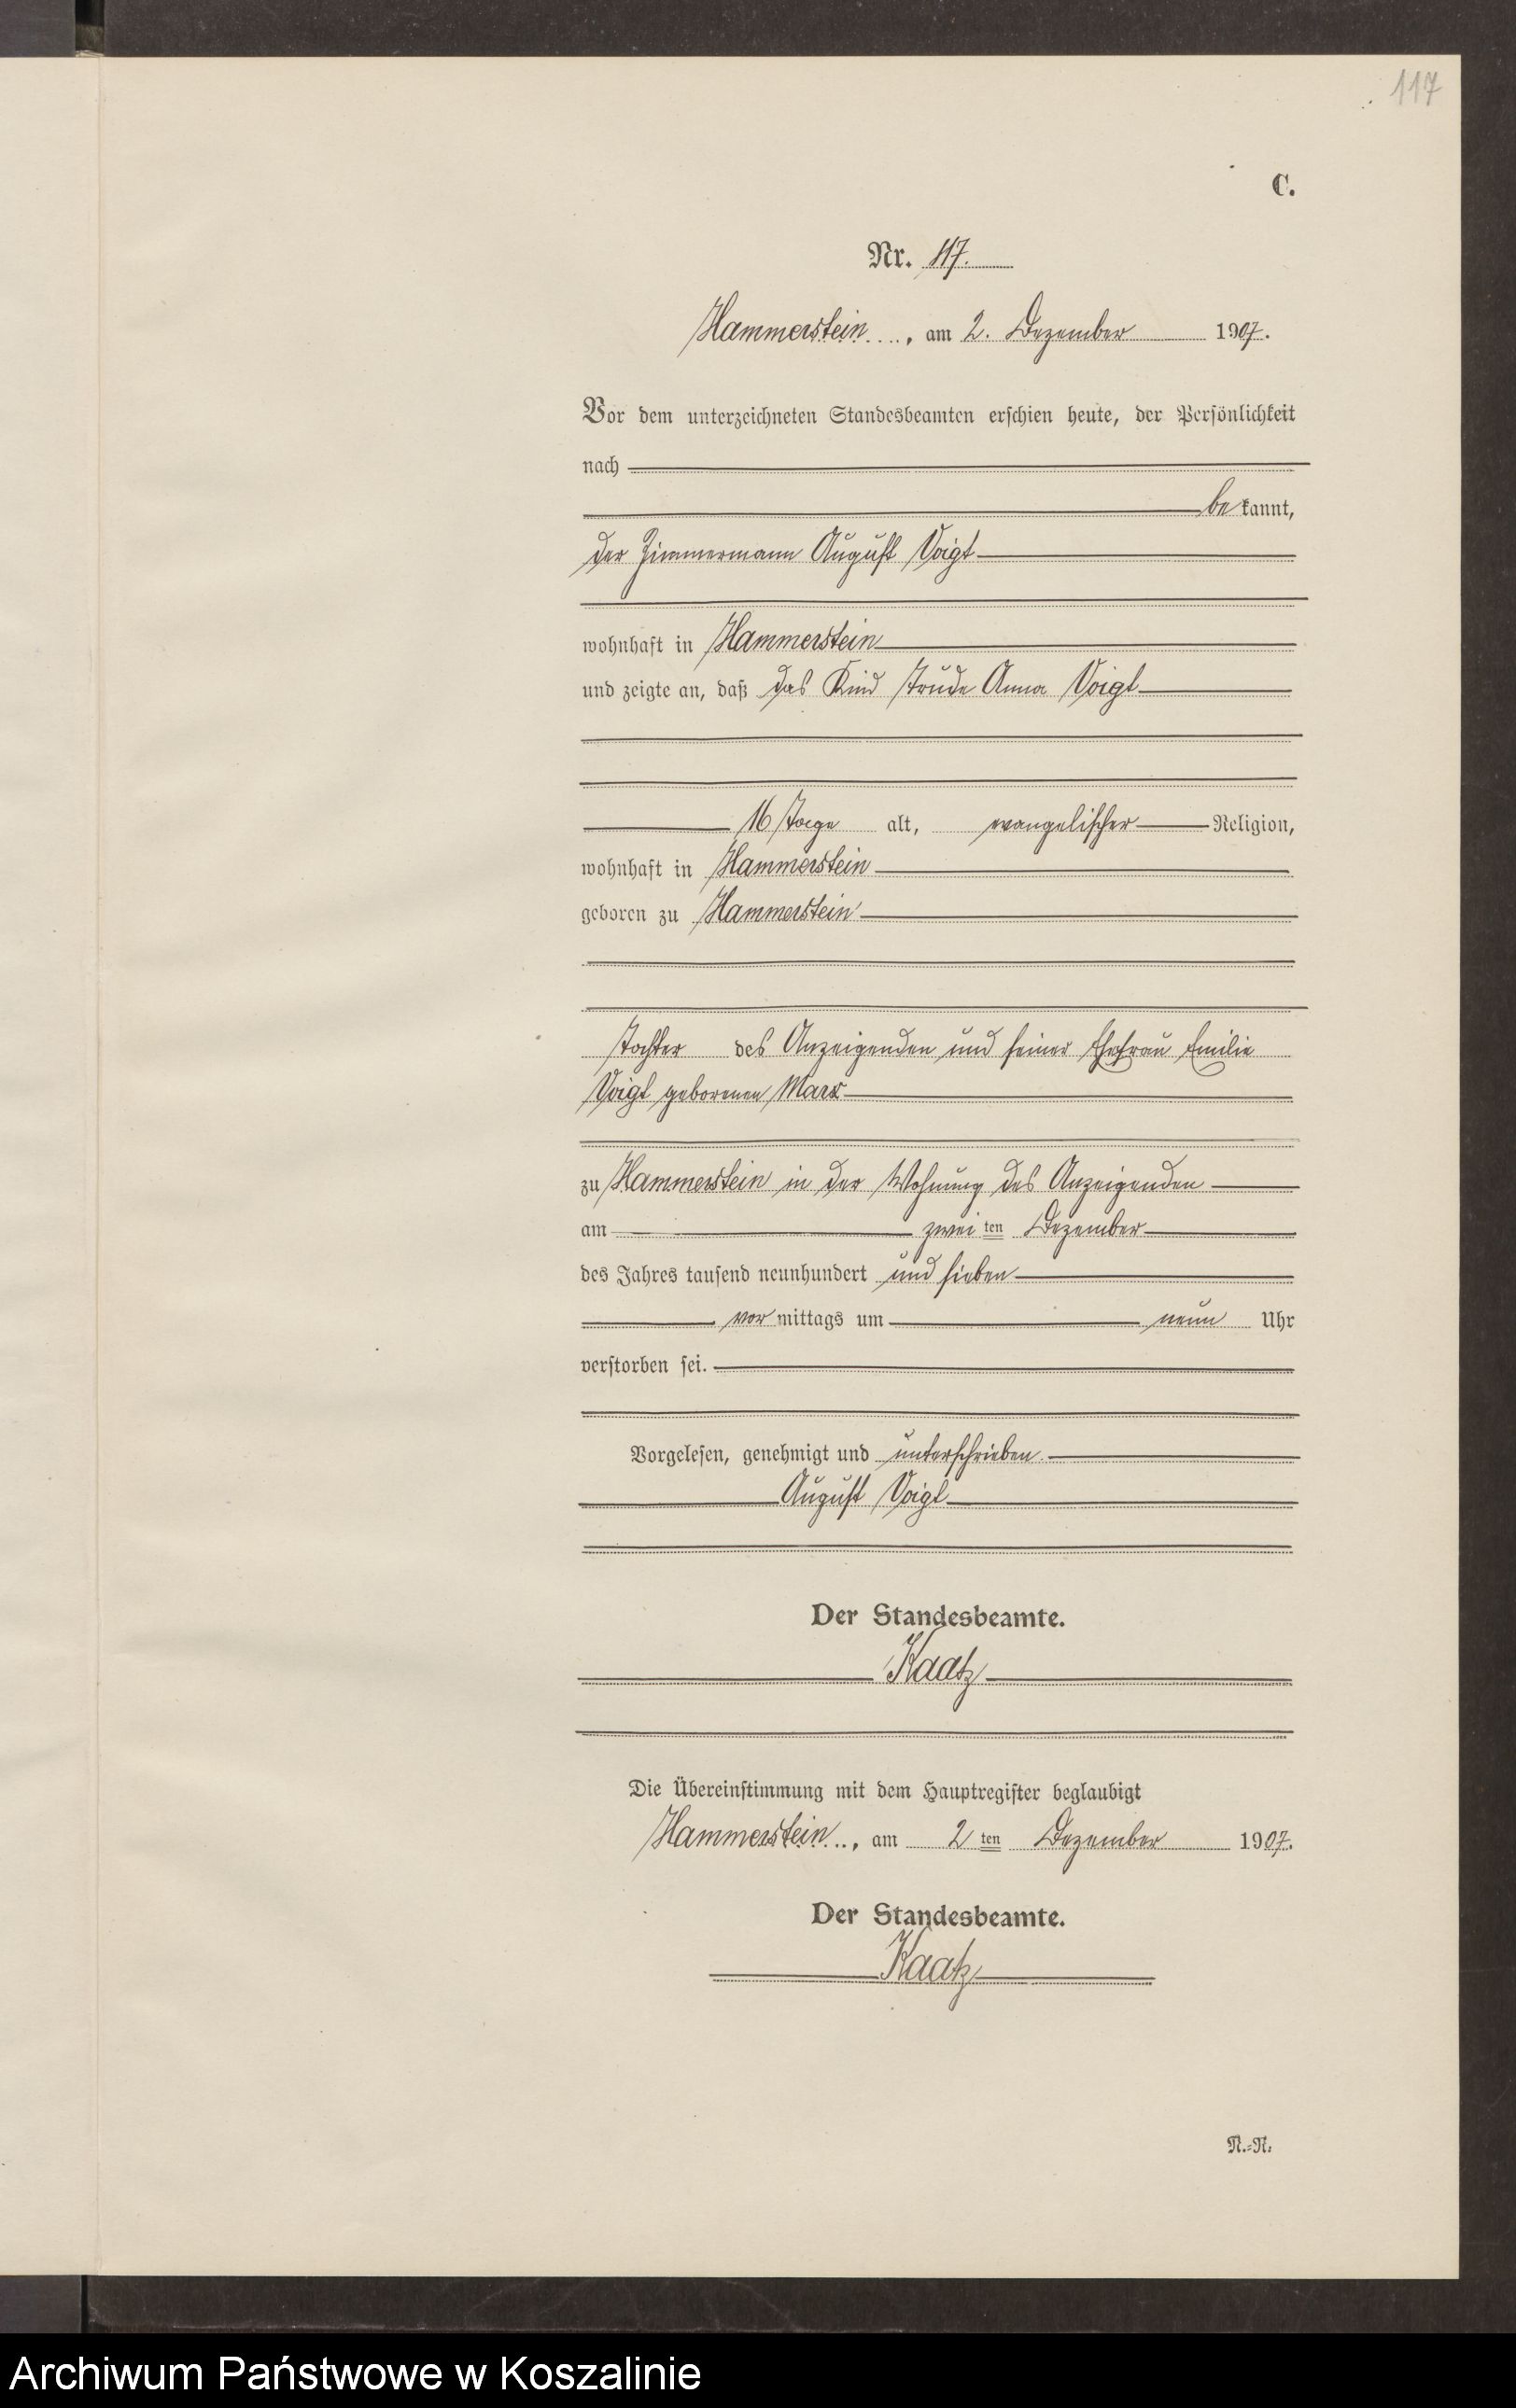 117
C.
Nr. 117.
Hammerstein, am 2. Dezember 1907.
Vor dem unterzeichneten Standesbeamten erschien heute, der Persönlichkeit
nach
bekannt,
der Zimmermann August Voigt
wohnhaft in Hammerstein
und zeigte an, daß das Kind Trude Anna Voigt
16 Tage alt, evangelischer Religion,
wohnhaft in Hammerstein
geboren zu Hammerstein
Tochter des Anzeigenden und seiner Ehefrau Emilie
Voigt geborenen Marx
zu Hammerstein in der Wohnung des Anzeigenden
am zweiten Dezember
des Jahres tausend neunhundert und sieben
vormittags um neun Uhr
verstorben sei.
Vorgelesen, genehmigt und unterschrieben.
August Voigt
Der Standesbeamte.
Kaatz
Die Übereinstimmung mit dem Hauptregister beglaubigt
Hammerstein, am 2ten Dezember 1907.
Der Standesbeamte.
Kaatz
N.=N.
Archiwum Państwowe w Koszalinie